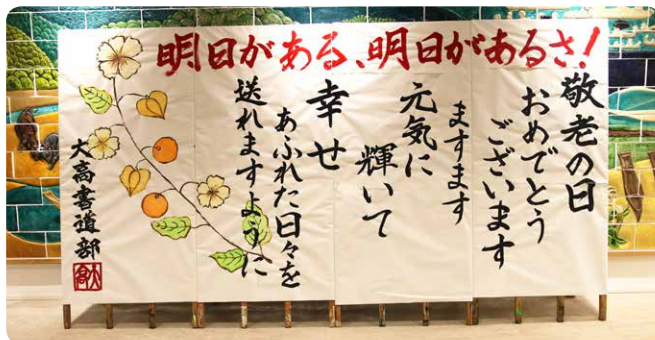 明日がある、明日があるさ!
敬老の日
おめでとう
ございます
ますます
元気に
輝いて
幸せ
あふれた日々を
送れますように
大高書道部
大高